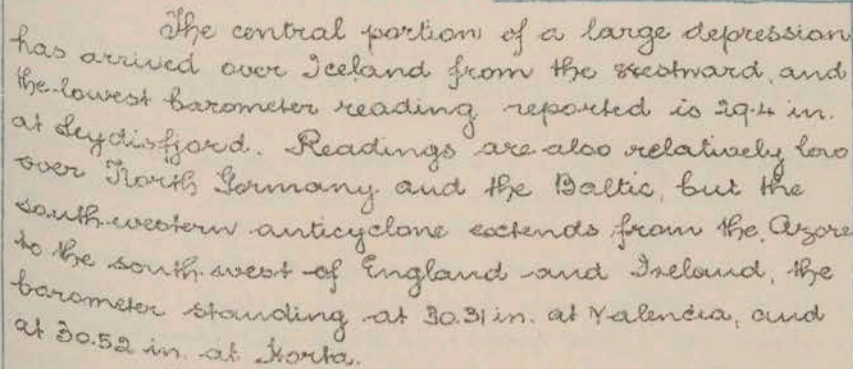 The central portion of a large depression
has arrived over Iceland from the westward, and
the lowest barometer reading reported is 29.4 in.
at Seydisfjord. Readings are also relatively low
over North Germany and the Baltic, but the
south-western anticyclone extends from the Azore
to the south-west of England and Ireland, the
barometer standing at 30.31 in. at Valencia, and
at 30.52 in. at Horta.